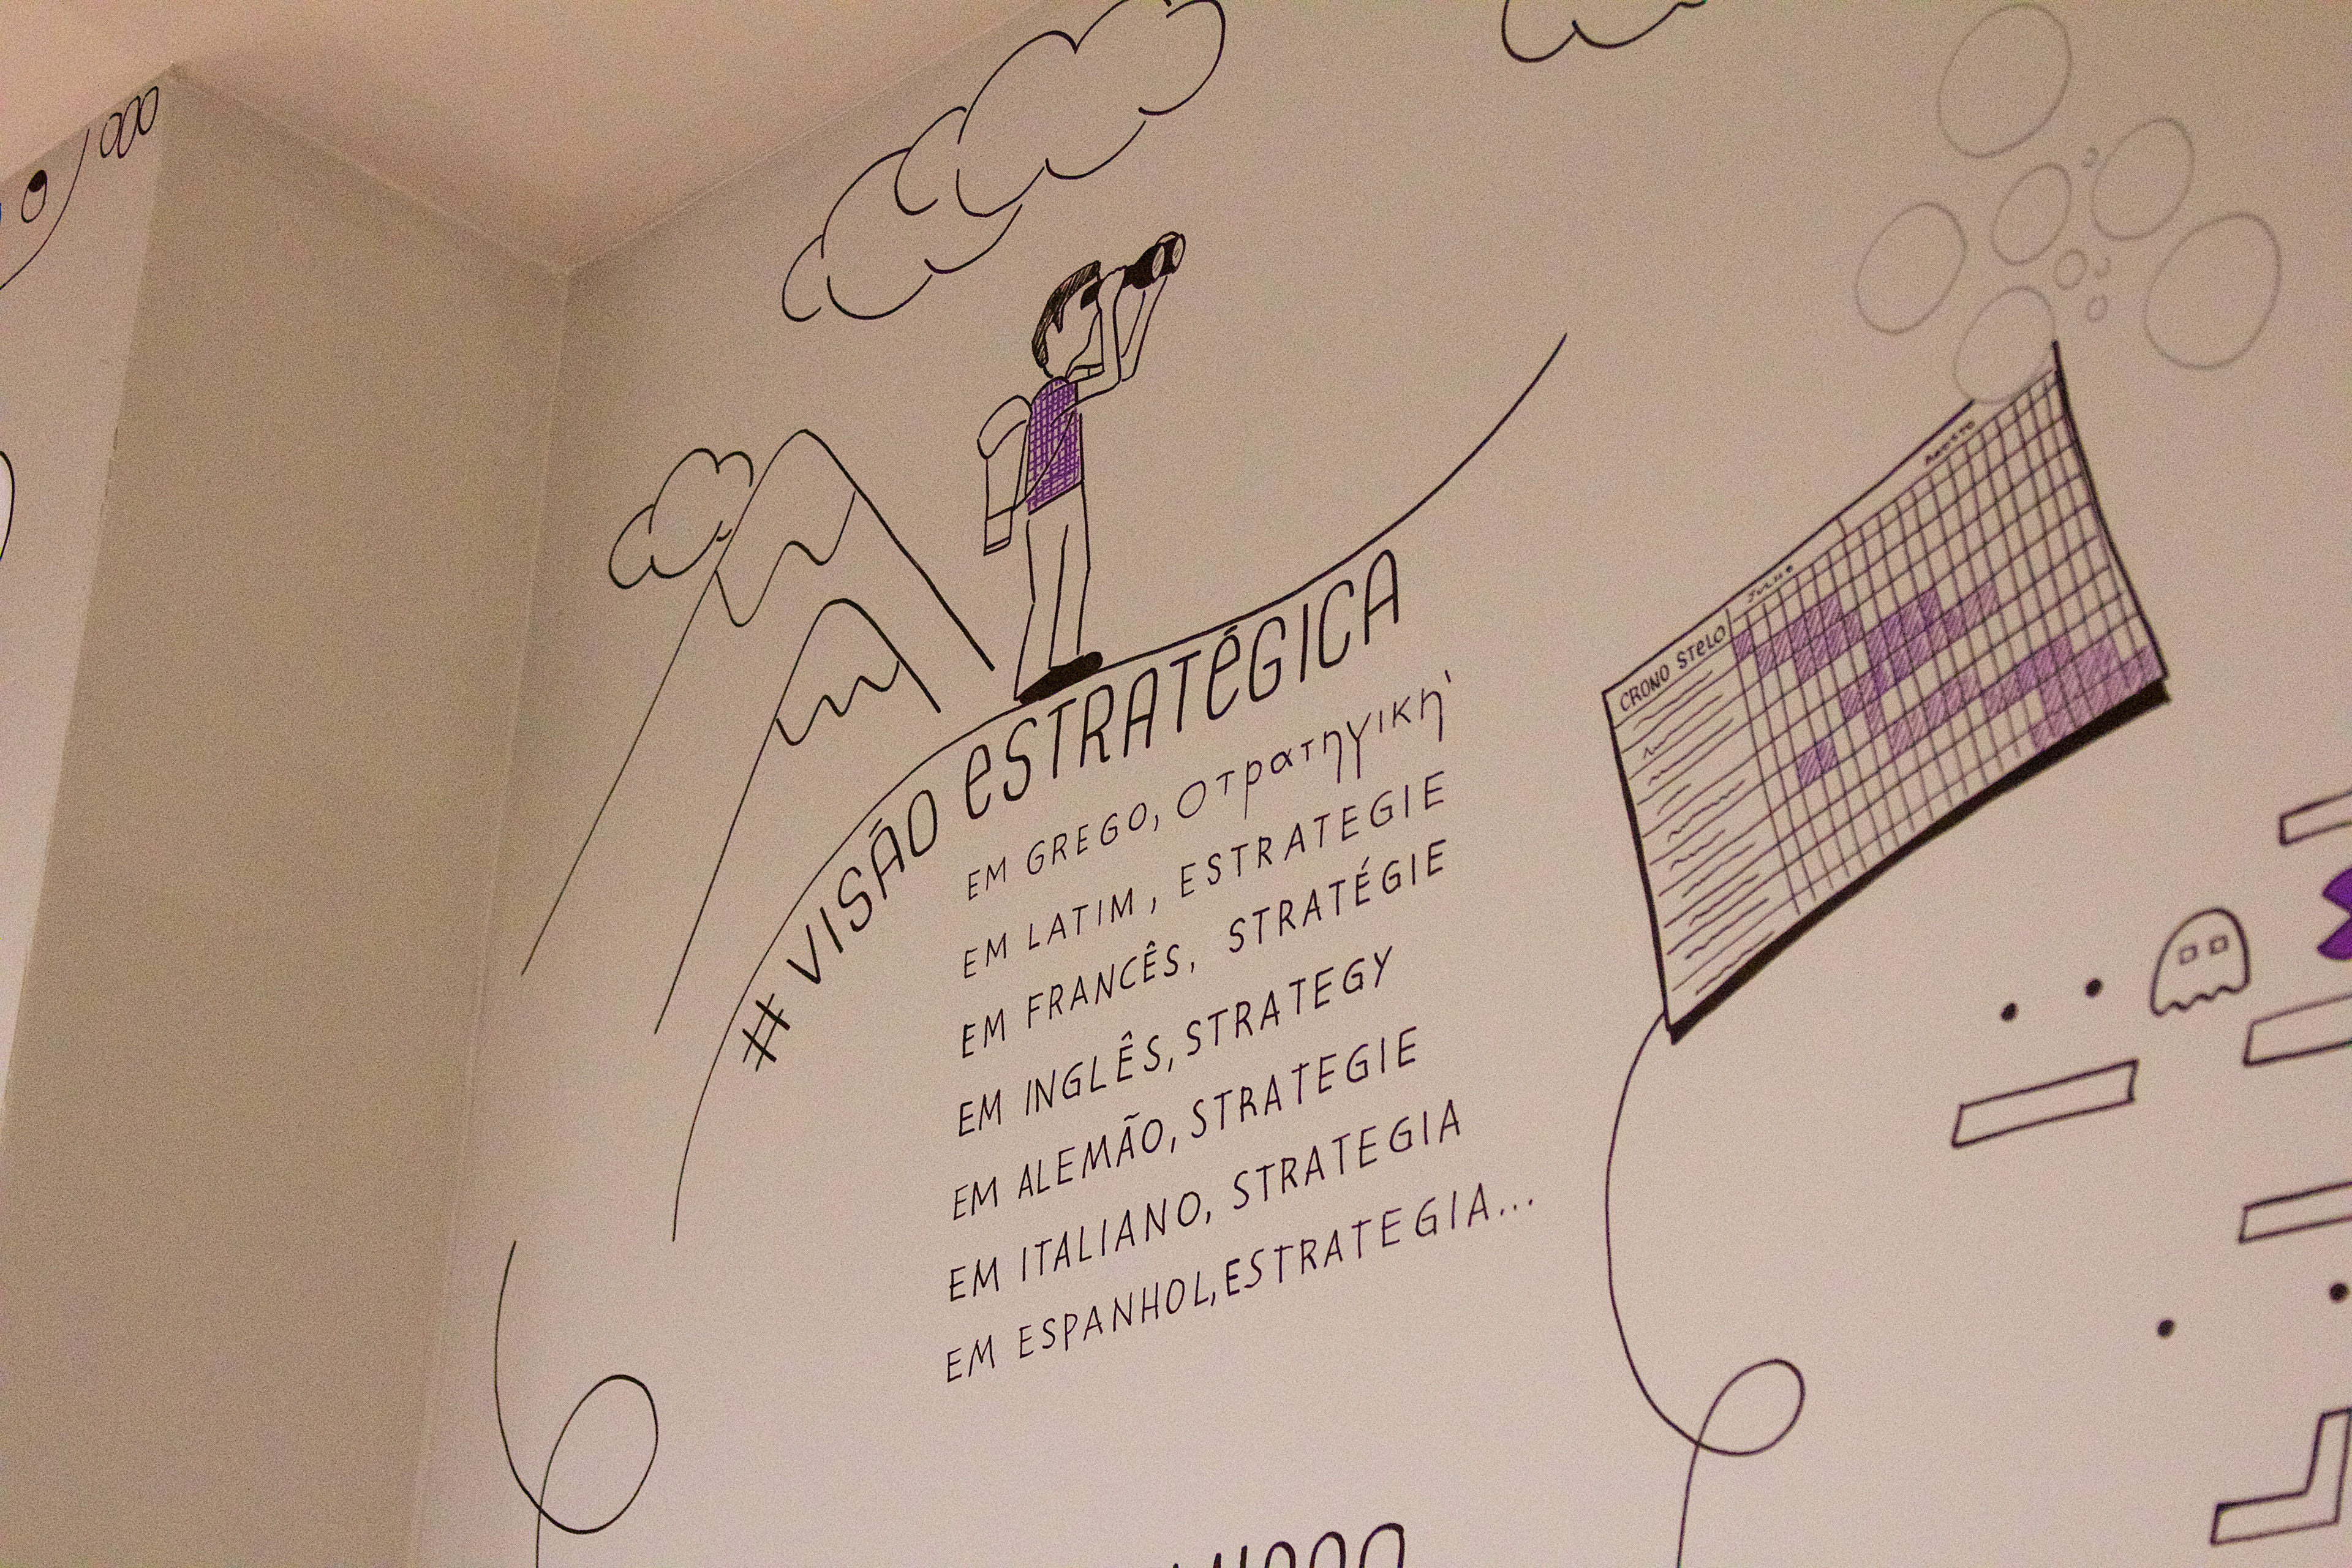 # VISÃO eSTRATÉGICA
EM GREGO, στρατηγική
EM LATIM, ESTRATEGIE
EM FRANCÊS, STRATÉGIE
EM INGLÊS, STRATEGY
EM ALEMÃO, STRATEGIE
EM ITALIANO, STRATEGIA
EM ESPANHOL, ESTRATEGIA...
CRONO STeLO
JULHO
AGOSTO